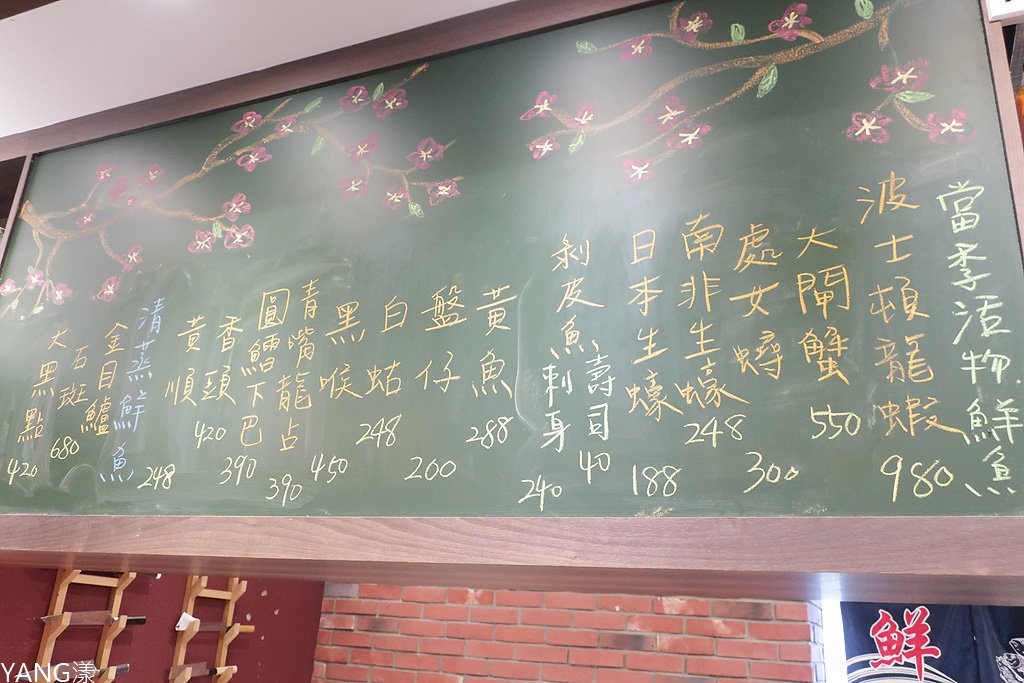 當季活物.鮮魚
波士頓龍蝦
980
大閘蟹
550
處女蟳
300
南非生蠔
248
日本生蠔
188
剝皮魚
壽司
40
刺身
240
黃魚
288
盤仔
200
白帖
248
黑喉
450
青嘴龍占
390
圓鱈下巴
390
香頭
420
黃順
248
清蒸鮮魚
金目鱸
石斑
680
大黑點
420
鮮
YANG漾